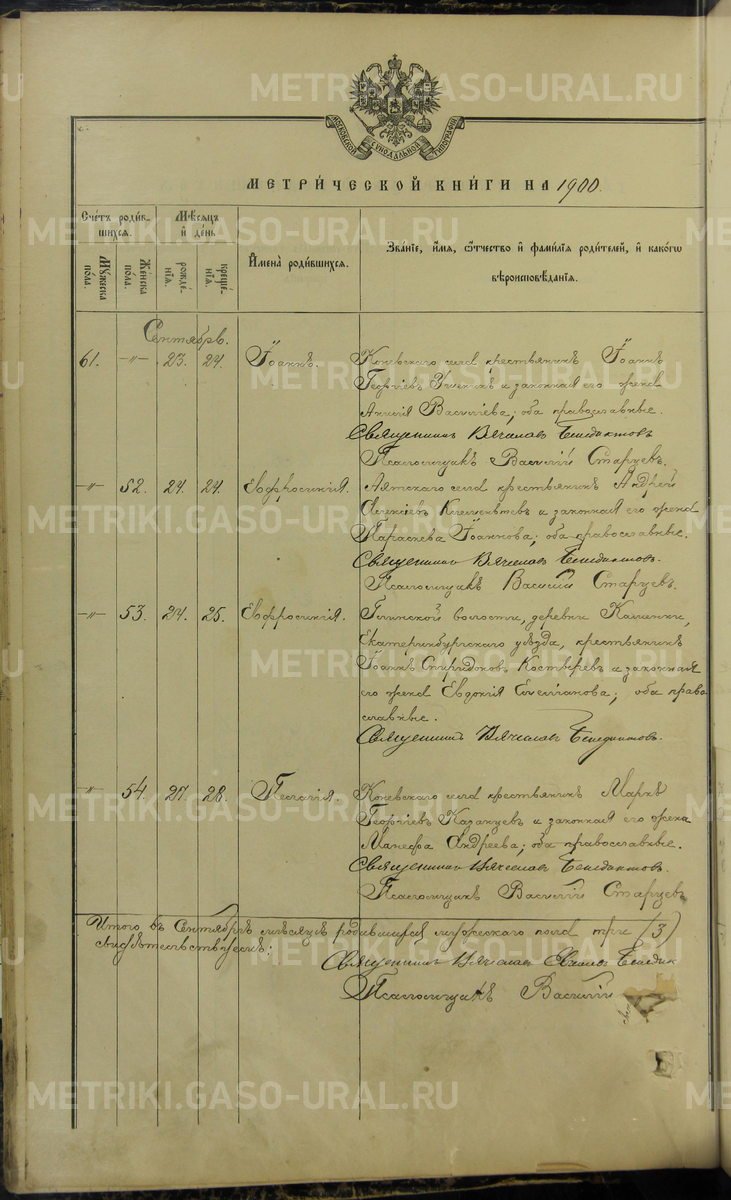 METRIKI.GASO-URAL.RU
МОСКОВСКОЙ СѴНОДАЛЬНОЙ ТИПОГРАФІИ
МЕТРИ́ЧЕСКОЙ КНИ́ГИ НА 1900.
Сче́тъ роди́вшихсѧ.
Мꙋжеска по́ла.
Же́нска по́ла.
Мѣ́сѧцъ и҆ де́нь
рожде́нїѧ.
креще́нїѧ.
И҆мена̀ роди́вшихсѧ.
Зва́нїе, и҆́мѧ, ѻ҆́тчество и҆ фами́лїѧ роди́телей, и҆ како́гѡ
вѣроисповѣ́данїѧ.
Сентябрь.
61. —„— 23. 24. Іоаннъ. Коневскаго села крестьянинъ Іоаннъ
Георгіевъ и законная его жена
Васильева; оба православные.
Священникъ Вячеславъ Бенедиктовъ
Псаломщикъ Василій Старцевъ.
—„— 52. 24. 24. Евфросинія. Аятскаго села крестьянинъ Андрей
Алексіевъ Клементьевъ и законная его жена
Параскева Іоаннова; оба православные.
Священникъ Вячеславъ Бенедиктовъ.
Псаломщикъ Василій Старцевъ.
—„— 53. 24. 25. Евфросинія. Глинской волости, деревни
Екатеринбургскаго уѣзда, крестьянинъ
Іоаннъ Спиридоновъ Костыревъ и законная
его жена Евдокія Емеліанова; оба право
славные.
Священникъ Вячеславъ Бенедиктовъ.
—„— 54. 27. 28. Пелагія. Коневскаго села крестьянинъ Маркъ
Георгіевъ Казанцевъ и законная его жена
Манефа Андреева; оба православные.
Священникъ Вячеславъ Бенедиктовъ.
Псаломщикъ Василій Старцевъ
Итого въ Сентябрѣ мѣсяцѣ родившихся мужескаго пола три (3)
свидѣтельствуемъ:
Священникъ Вячеславъ Бенедик
Псаломщикъ Василій